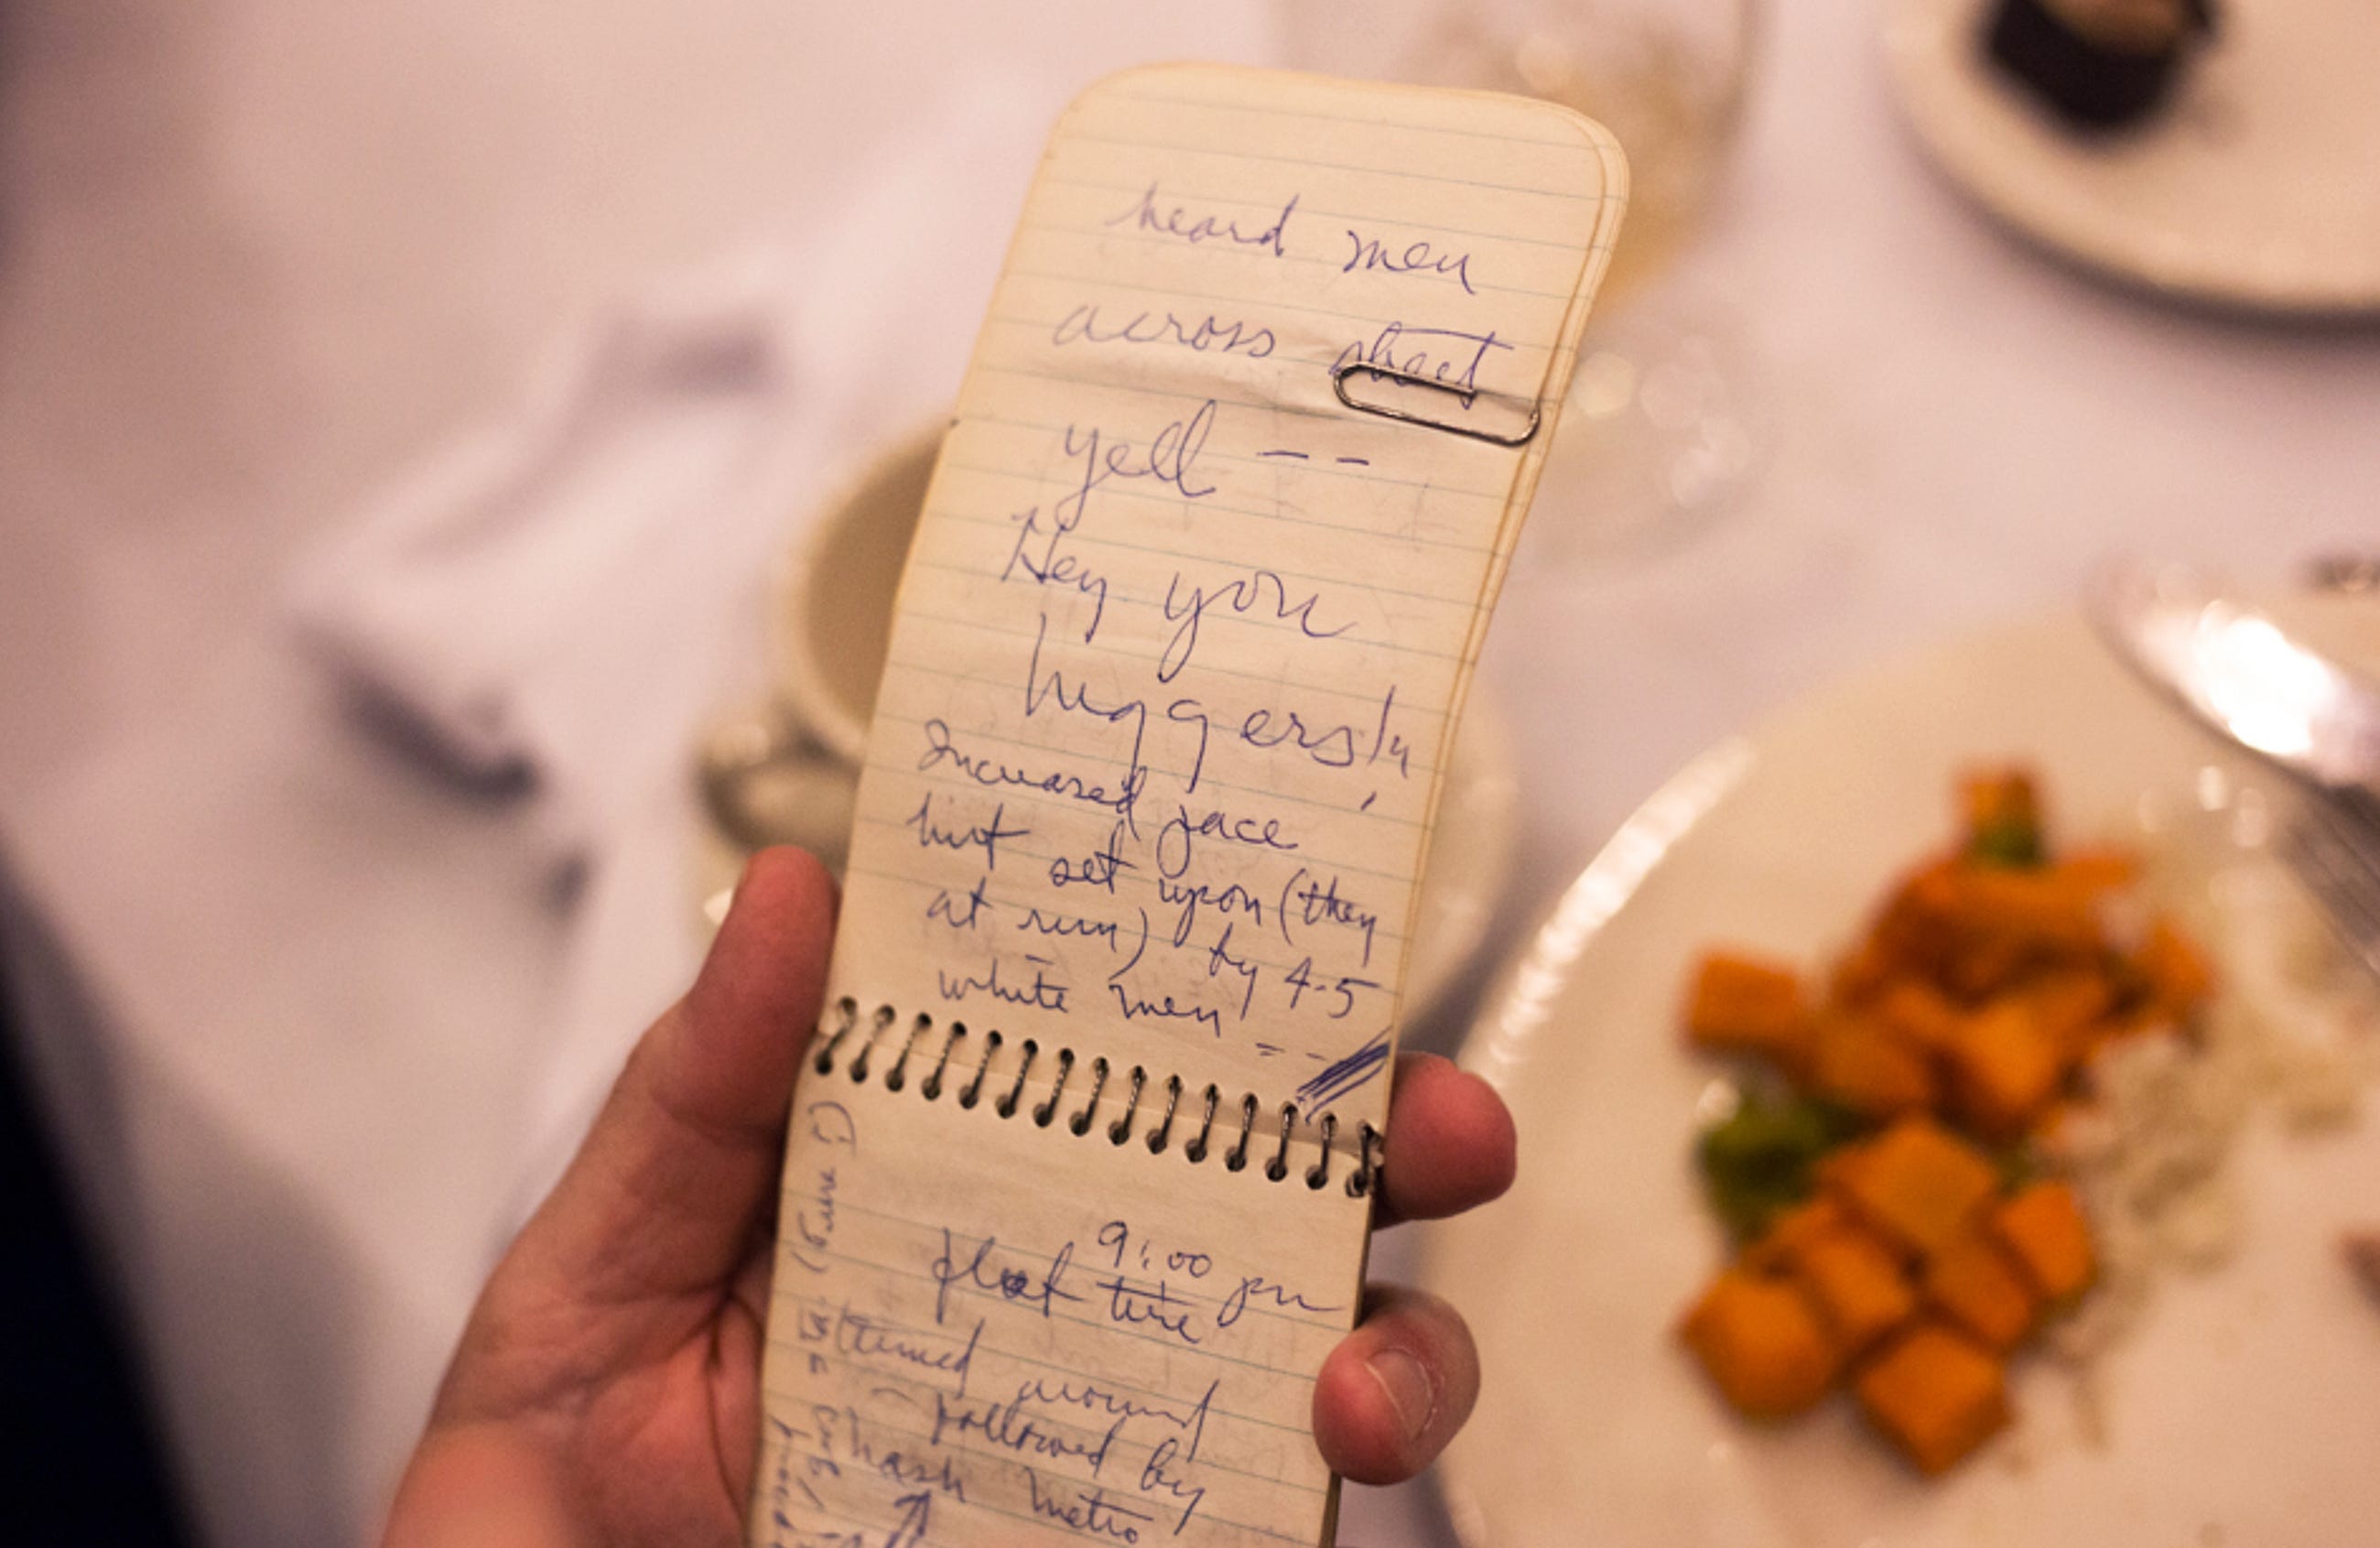 heard men
across street
yell --
Hey you
niggers!"
Increased pace
but set upon (they
at run) by 4-5
white men --
9:00 pm
flat tire
turned around
followed by
Nash Metro